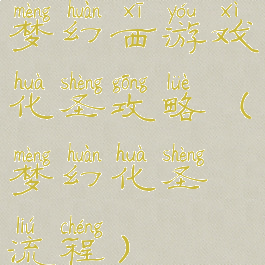 mèng huàn xī yóu xì
梦幻西游戏
huà shèng gōng lüè
化圣攻略（
mèng huàn huà shèng
梦幻化圣
liú chéng
流程）